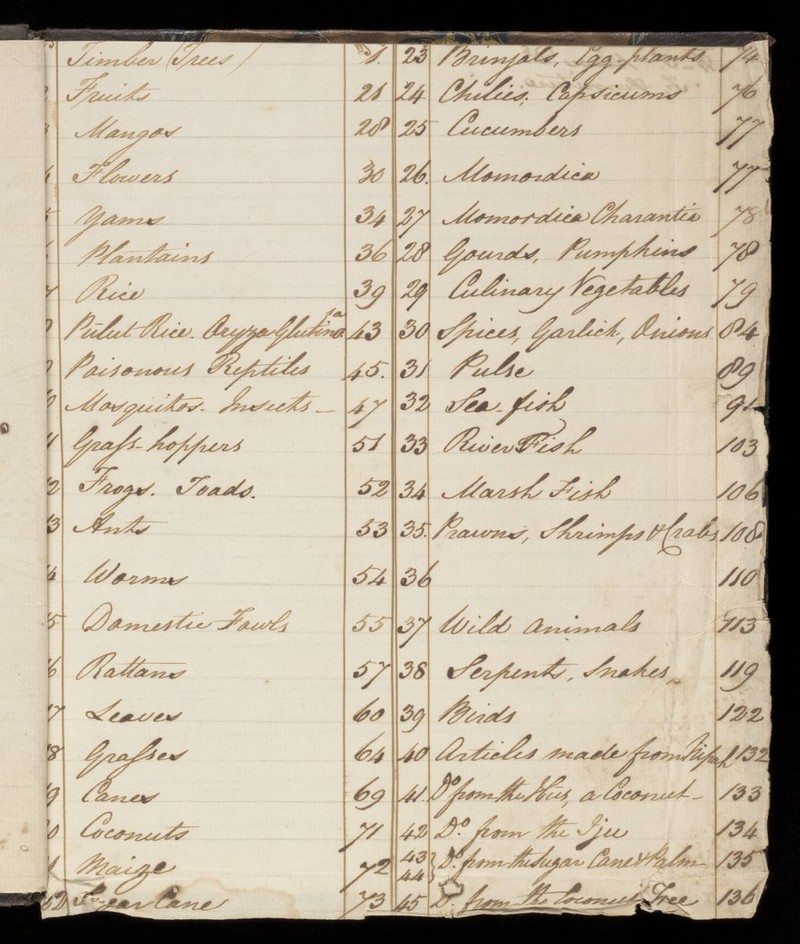 Timber (Trees) 1. 23 Brinjals, Egg-plants 74
Fruits 21 24 Chilies, Capsicums 76
Mangos 28 25 Cucumbers 77
Flowers 30 26. Momordica 77
5 Yams 34 27 Momordica Charantia 78
Plantains 36 28 Gourds, Pumpkins 78
7 Rice 39 29 Culinary Vegetables 79
Pulut Rice. Oryza Glutinosa 43 30 Spices, Garlick, Onions 84
Poisonous Reptiles 45. 31 Pulse 89
0 Mosquitos. Insects - 47 32 Sea-fish 91
1 Grass-hoppers 51 33 River Fish 103
2 Frogs. Toads. 52 34 Marsh Fish 106
3 Ants 53 35. Prawns, Shrimps & Crabs 108
4 Worms 54 36 110
5 Domestic Fowls 55 37 Wild animals 113
6 Rattans 57 38 Serpents, Snakes 119
7 Leaves 60 39 Birds 122
8 Grasses 64 40 Articles made from Nipah 132
9 Canes 69 41 Do from the a Coconut - 133
0 Coconuts 71 42 Do. from the Iju 134
1 Maize 72 43 44 } Do. from the Sugar Cane & Palm 135
22 Sugar Cane 73 45 D. from the Coconut Tree 136